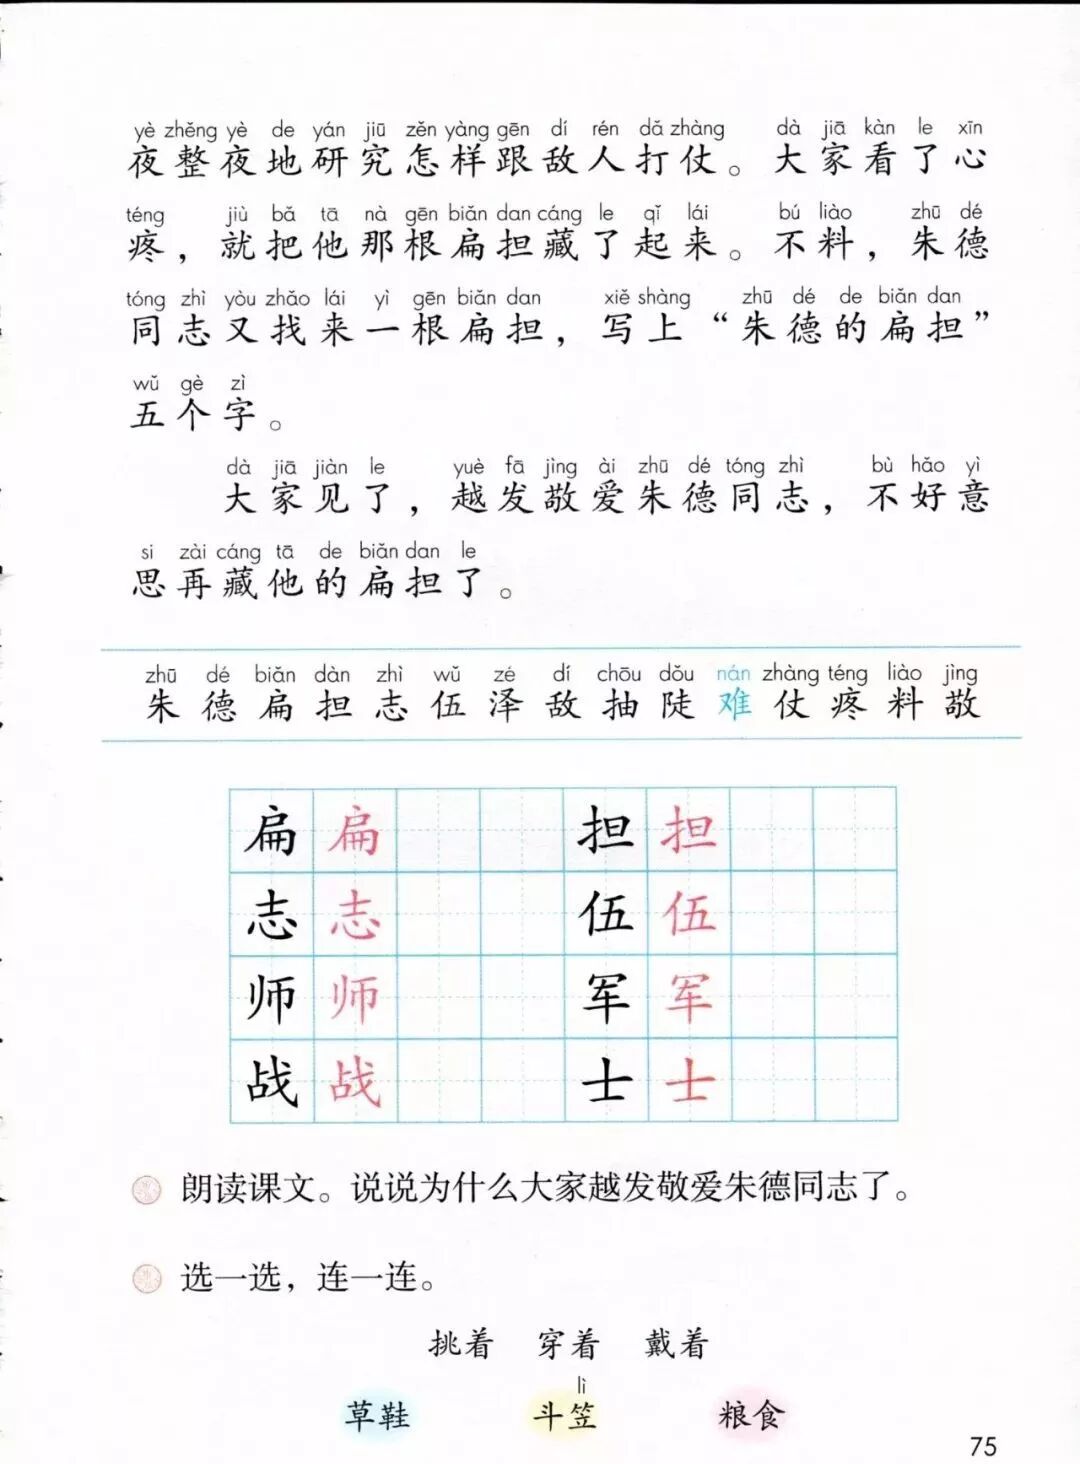 yè zhěng yè de yán jiū zěn yàng gēn dí rén dǎ zhàng dà jiā kàn le xīn
夜整夜地研究怎样跟敌人打仗。大家看了心
téng jiù bǎ tā nà gēn biǎn dan cáng le qǐ lái bú liào zhū dé
疼，就把他那根扁担藏了起来。不料，朱德
tóng zhì yòu zhǎo lái yì gēn biǎn dan xiě shàng zhū dé de biǎn dan
同志又找来一根扁担，写上“朱德的扁担”
wǔ gè zì
五个字。
dà jiā jiàn le yuè fā jìng ài zhū dé tóng zhì bù hǎo yì
大家见了，越发敬爱朱德同志，不好意
si zài cáng tā de biǎn dan le
思再藏他的扁担了。
zhū dé biǎn dàn zhì wǔ zé dí chōu dǒu nán zhàng téng liào jìng
朱德扁担志伍泽敌抽陡难仗疼料敬
扁 扁 担 担
志 志 伍 伍
师 师 军 军
战 战 士 士
朗读课文。说说为什么大家越发敬爱朱德同志了。
选一选，连一连。
挑着 穿着 戴着
lì
草鞋 斗笠 粮食
75